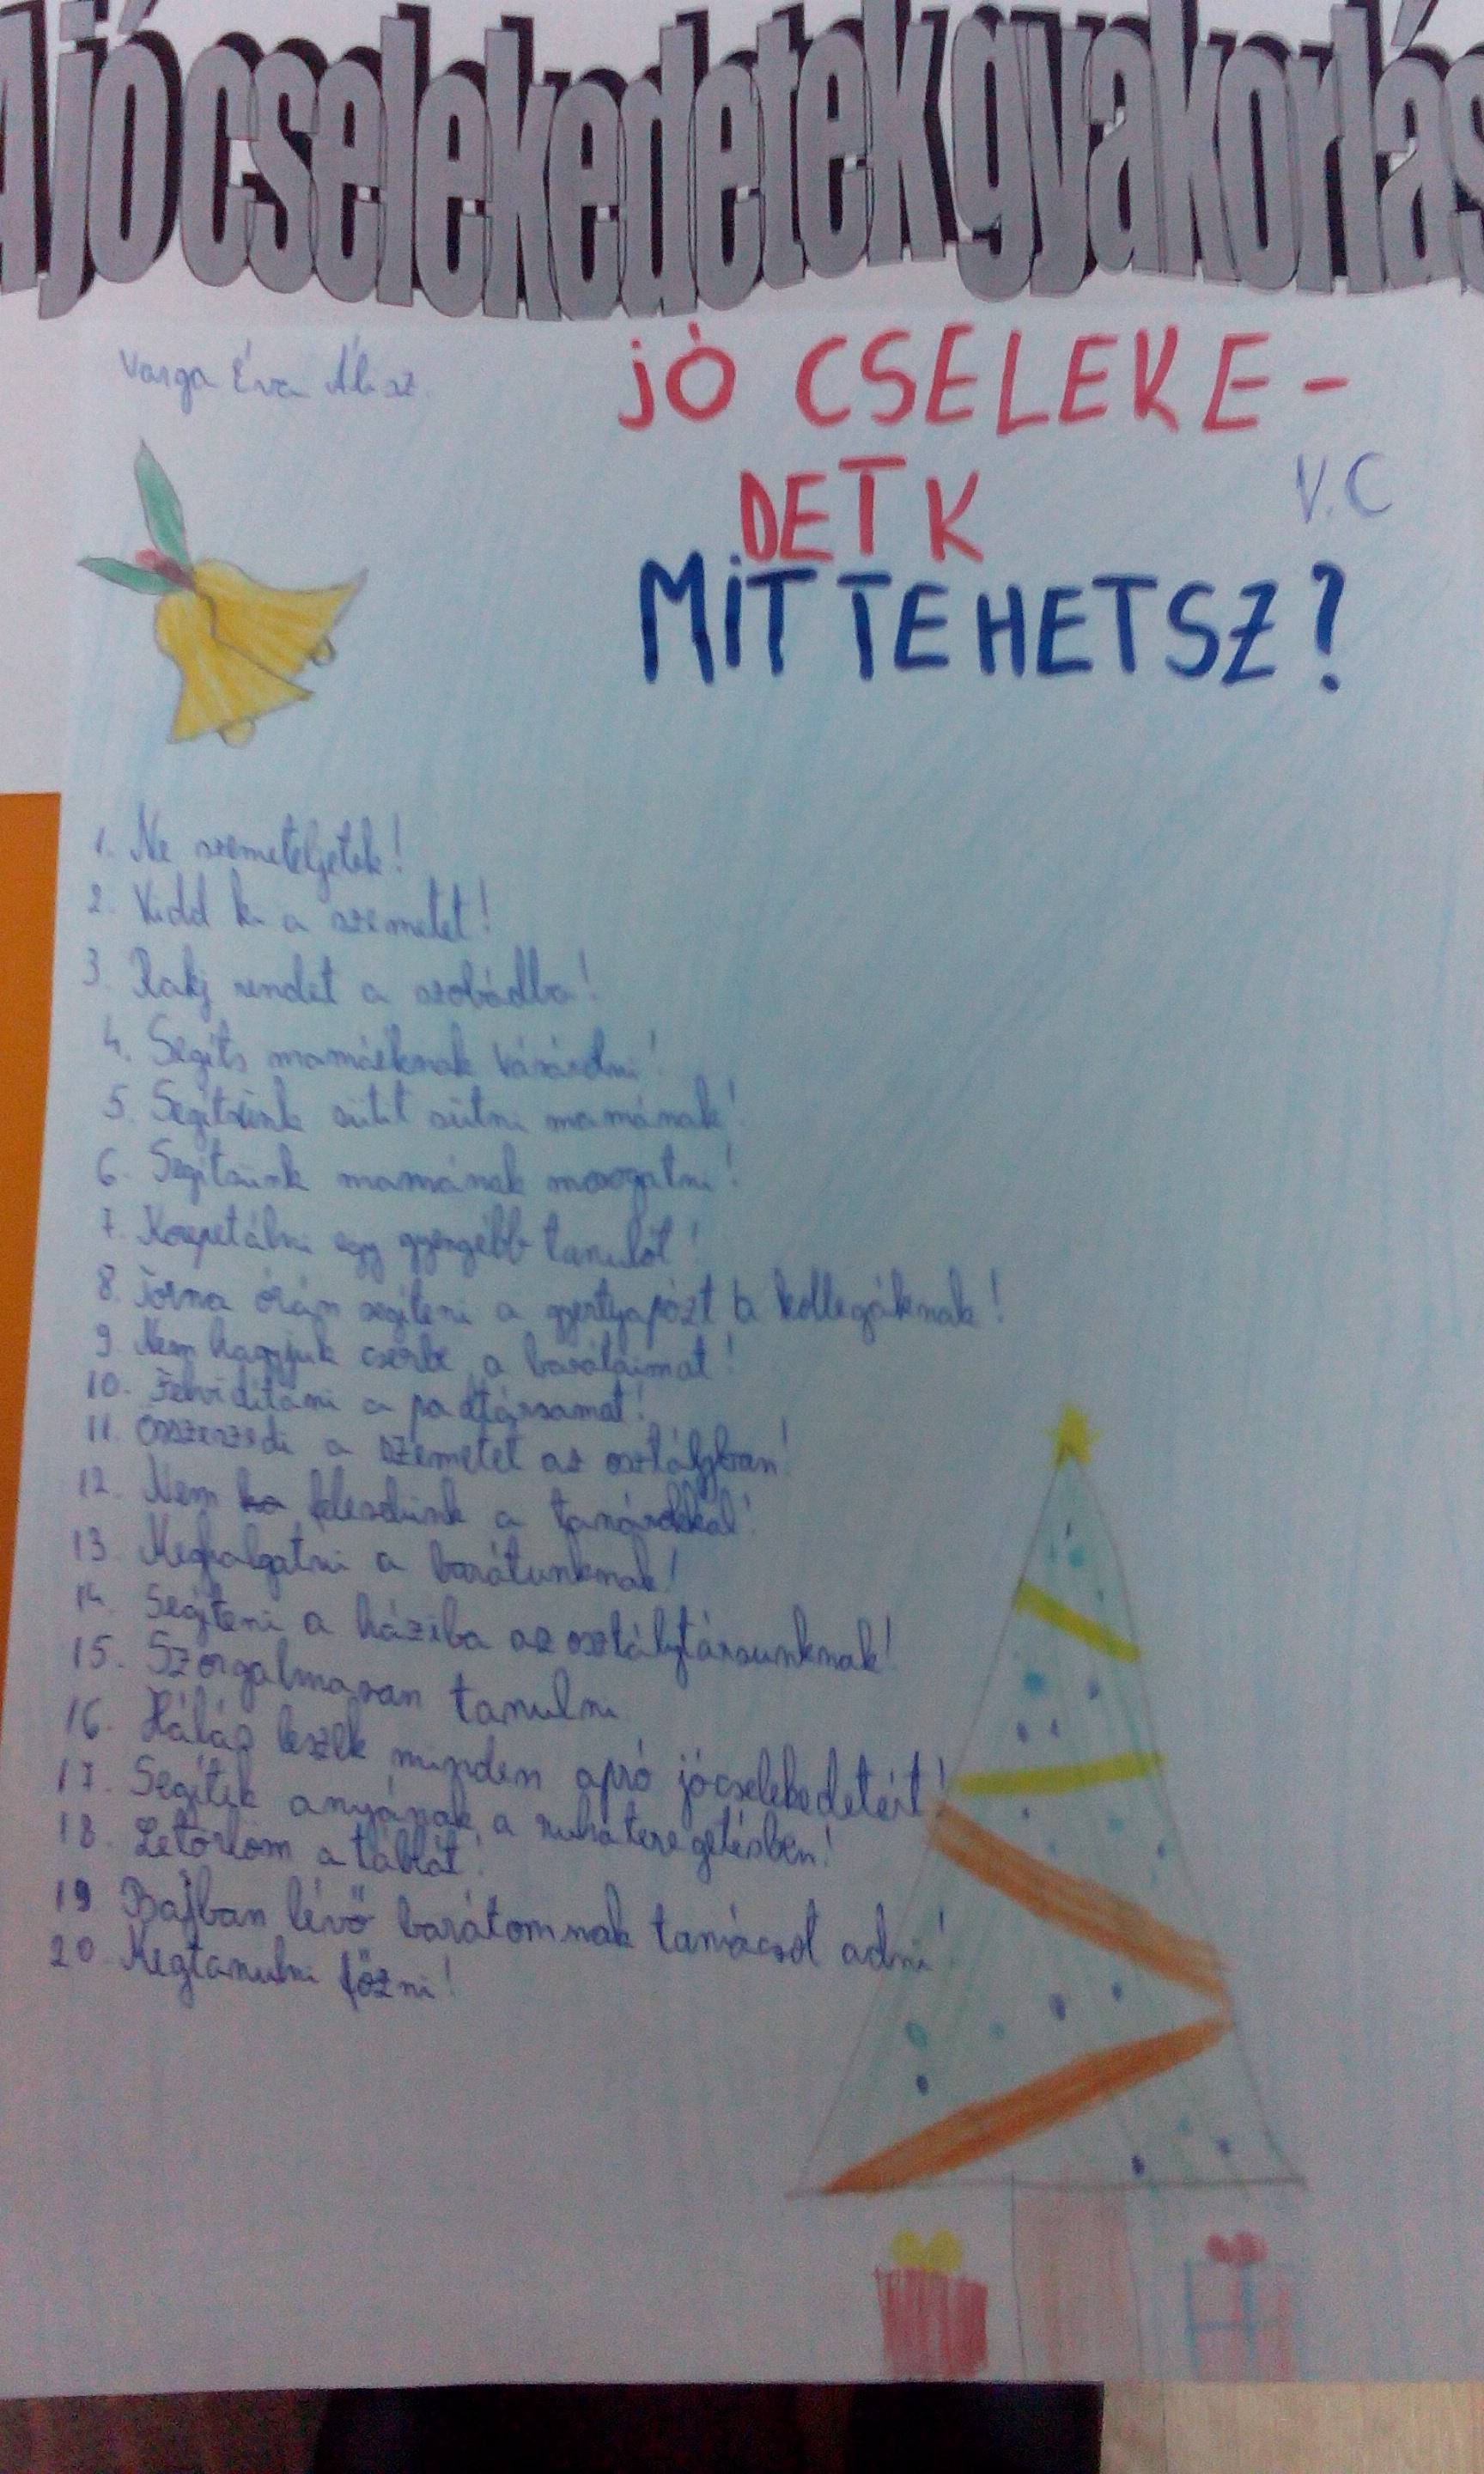 A jó cselekedetek gyakorlás
Varga Éva Alisz
JÓ CSELEKE-
DETK
V.C
MIT TEHETSZ?
1. Ne szemeteljetek!
2. Vidd ki a szemetet!
3. Rakj rendet a szobádba!
4. Segíts mamáéknak vásárolni!
5. Segítsünk sütit sütni mamának!
6. Segítsünk mamának mosogatni!
7. Korepetálni egy gyengébb tanulót!
8. Torna órán segíteni a gyertyapózt a kollegáknak!
9. Nem hagyjuk cserbe a barátaimat!
10. Felvidítani a padtársamat!
11. Összeszedi a szemetet az osztályban!
12. Nem feleselünk a tanárokkal!
13. Meghalgatni a barátunknak!
14. Segíteni a háziba az osztálytársunknak!
15. Szorgalmasan tanulni
16. Hálás leszek minden apró jócselekedetéit!
17. Segítek anyának a ruha teregetésben!
18. Letörlöm a táblát!
19 Bajban lévő barátomnak tanácsot adni!
20 Megtanulni főzni!